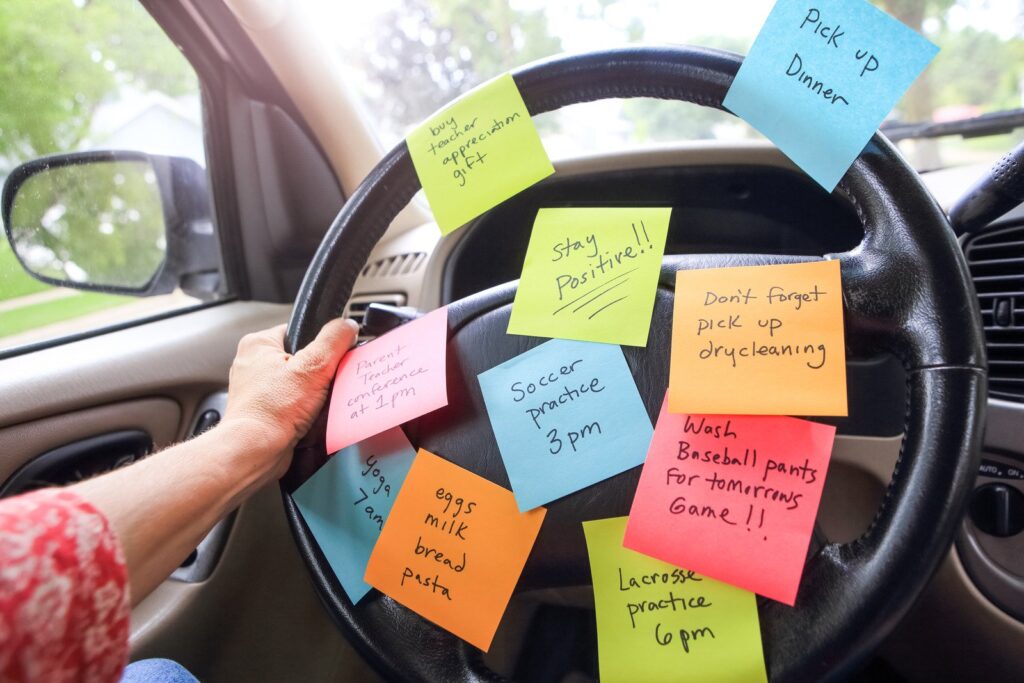 Pick up
Dinner
buy
teacher
appreciation
gift
Stay
Positive!!
Don't forget
pick up
drycleaning
Parent
Teacher
conference
at 1pm
Soccer
practice
3pm
Wash
Baseball pants
For tomorrows
Game!!
yoga
7am
eggs
milk
bread
pasta
Lacrosse
practice
6pm
AUTO
ON